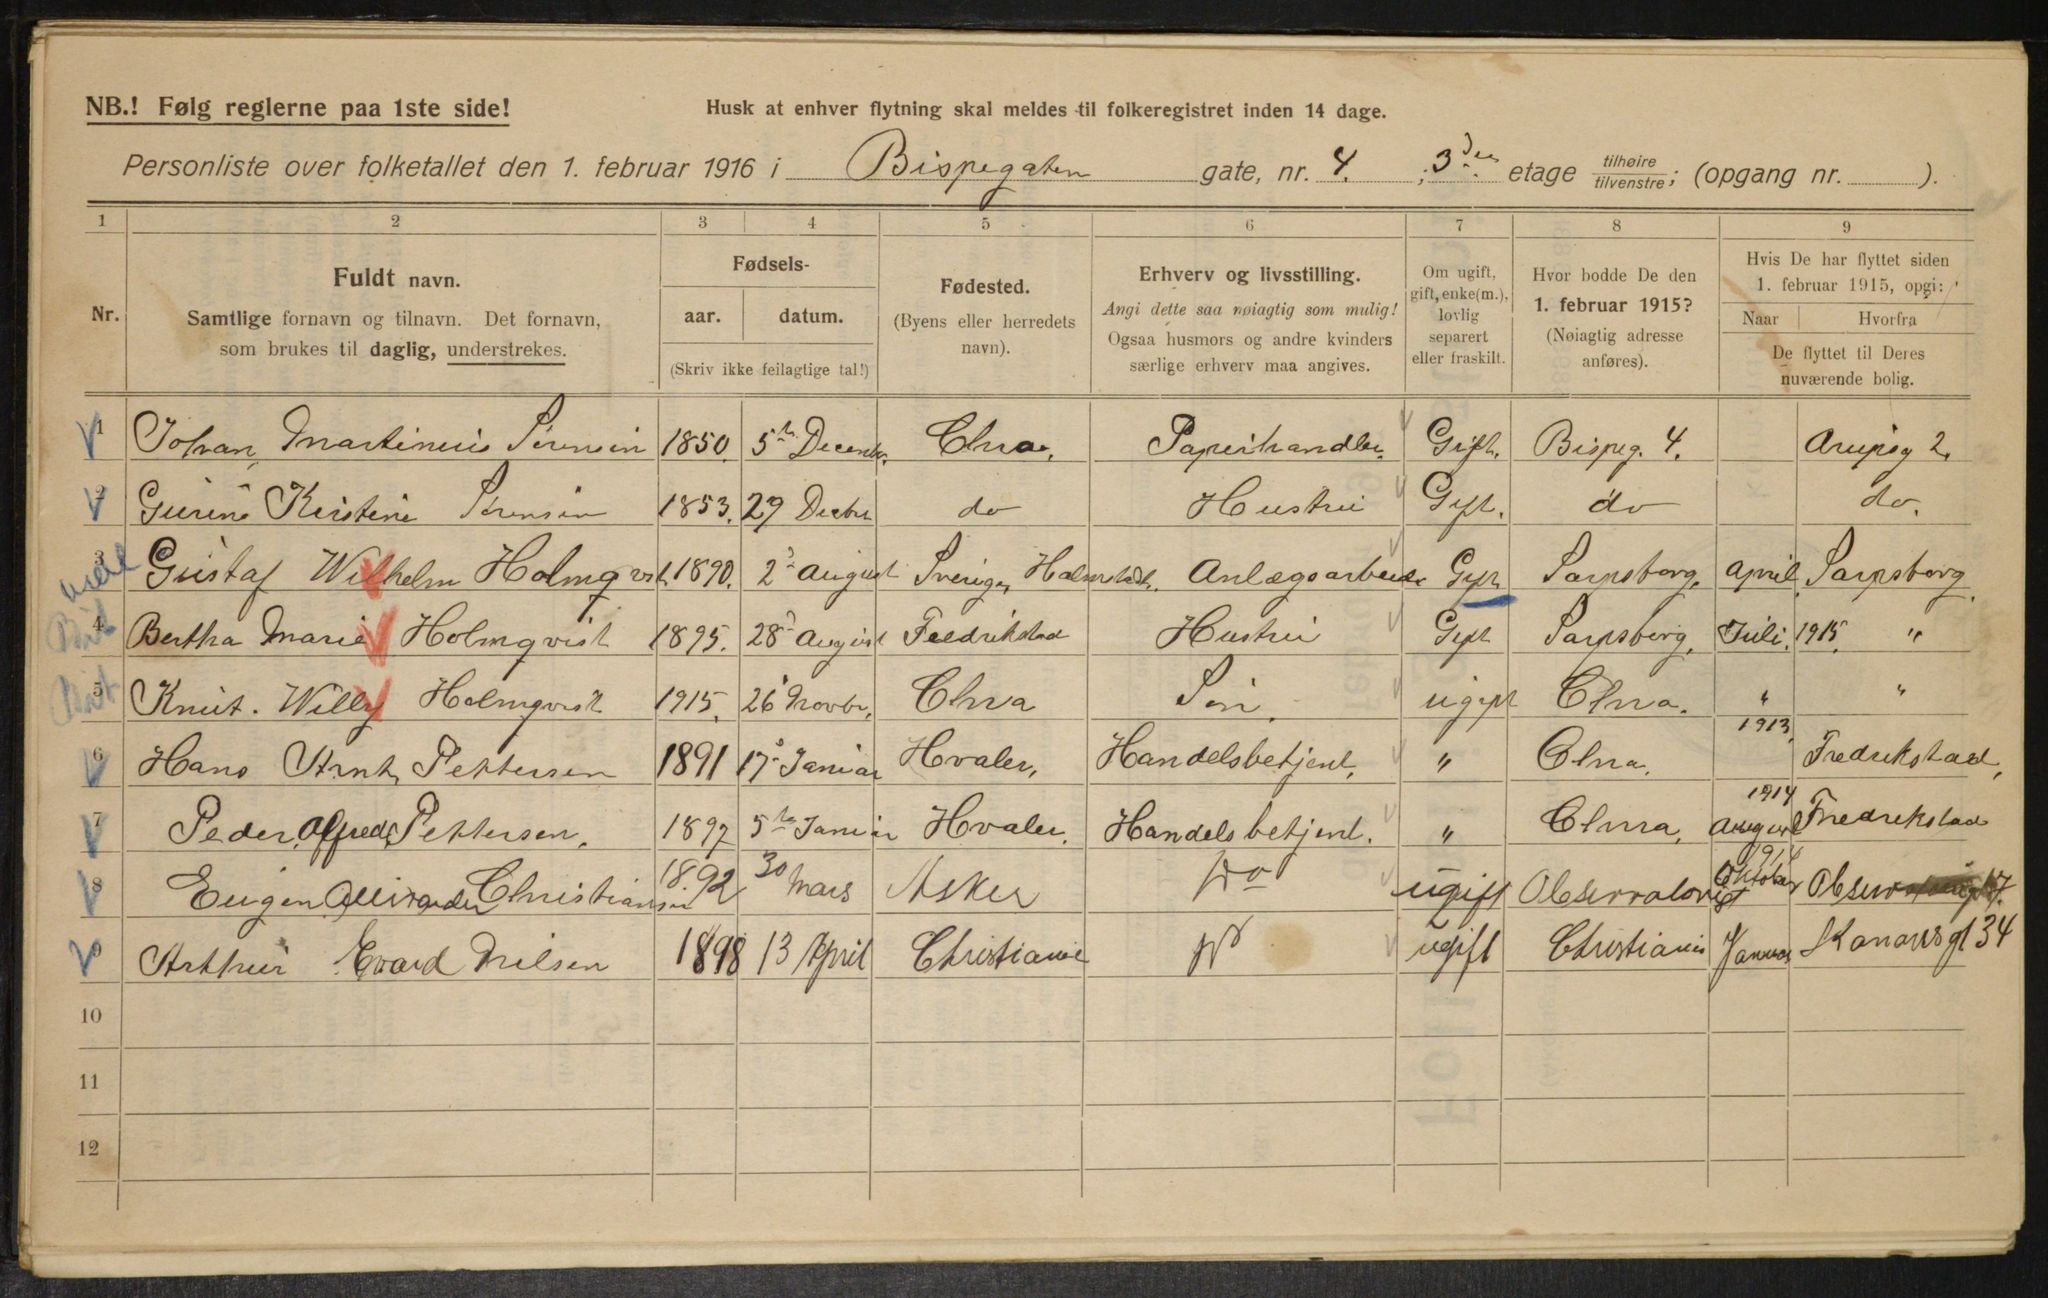 NB.! Følg reglerne paa 1ste side!
Husk at enhver flytning skal meldes til folkeregistret inden 14 dage.
Personliste over folketallet den 1. februar 1916 i Bispegaten gate, nr. 4. ; 3den etage tilhøire/tilvenstre; (opgang nr. ).
1 2 3 4 5 6 7 8 9
Nr.
Fuldt navn.
Samtlige fornavn og tilnavn. Det fornavn,
som brukes til daglig, understrekes.
Fødsels-
aar. datum.
(Skriv ikke feilagtige tal!)
Fødested.
(Byens eller herredets
navn).
Erhverv og livsstilling.
Angi dette saa nøiagtig som mulig!
Ogsaa husmors og andre kvinders
særlige erhverv maa angives.
Om ugift,
gift, enke(m.),
lovlig
separert
eller fraskilt.
Hvor bodde De den
1. februar 1915?
(Nøiagtig adresse
anføres).
Hvis De har flyttet siden
1. februar 1915, opgi:
Naar Hvorfra
De flyttet til Deres
nuværende bolig.
1 Johan Martinius Sørensen 1850. 5te Decembr. Chra. Papirhandler. Gift. Bispeg. 4. Arupsg 2.
2 Gurine Kirstine Sørensen 1853. 29 Decbr do Hustru Gift. do do.
3 Gustaf Wilhelm Holmqvist. 1890. 2 August Sverige, Halmstadt. Anlægsarbeider Gift Sarpsborg. April. Sarpsborg.
4 Bertha Marie Holmqvist 1895. 28 August Fredrikstad Hustru Gift Sarpsborg. Juli. 1915. "
5 Knut. Willy Holmqvist 1915. 26 Novbr. Chra Søn. ugift Chra. " "
6 Hans Arnt Pettersen 1891 17 Januar Hvaler. Handelsbetjent. " Chra. 1913. Fredrikstad.
7 Peder. Alfred. Pettersen. 1897 5te Januar Hvaler. Handelsbetjent. " Chra. 1914 August Fredrikstad
8 Eugen Alexander Christiansen 1892 30 Mars Asker Do ugift Oktober
9 Arthur Evard Nilsen 1898 13 April Christiania Do ugift Christiania Januar Kanonsgt 34
10
11
12